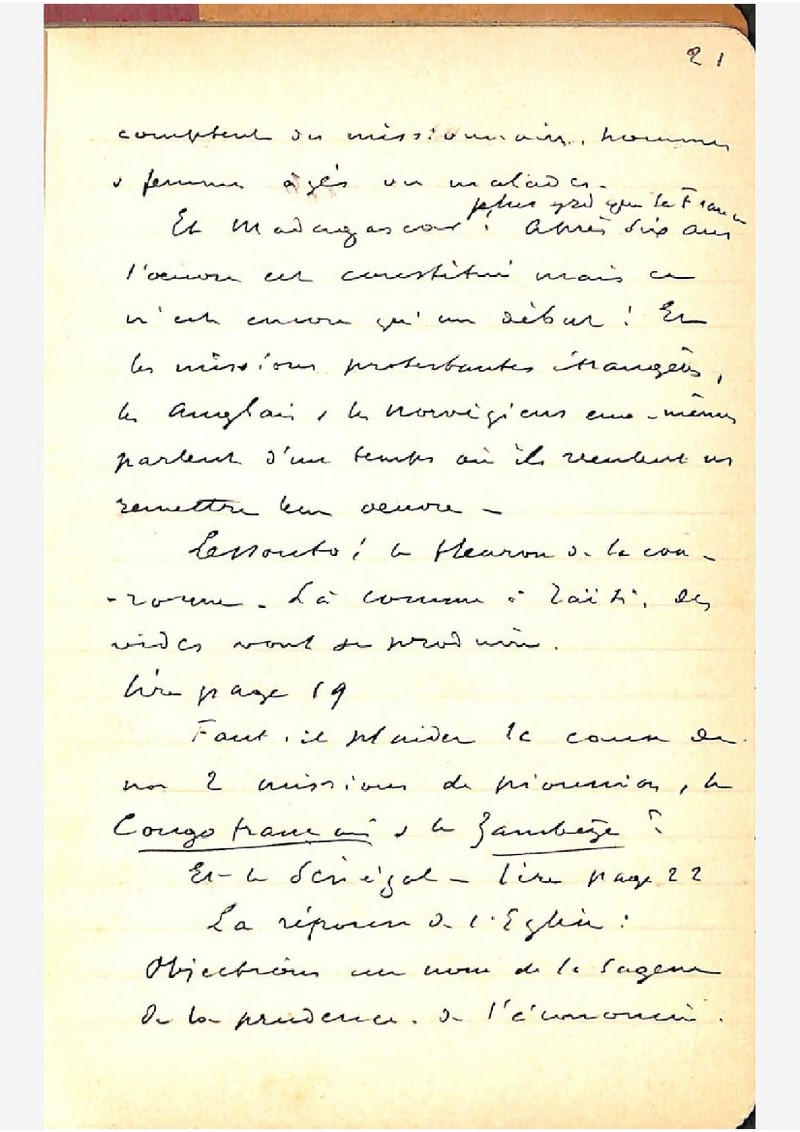 21
comptent des missionnaires, hommes
& femmes âgés ou malades.
plus grd que la France
Et Madagascar ! Après dix ans
l'œuvre est constituée mais ce
n'est encore qu'un début ! Et
les missions protestantes étrangères,
les Anglais, les Norvégiens eux-mêmes
parlent d'un temps où ils veulent nous
remettre leur œuvre -
Lessouto ! le fleuron de la cou-
-ronne. Là comme à Taïti, des
vides vont se produire.
lire page 19
Faut-il plaider la cause de
nos 2 missions de pionniers, le
Congo français & le Zambèze ?
Et le Sénégal - lire page 22
La réponse de l'Eglise :
Objections au nom de la sagesse
de la prudence, de l'économie.